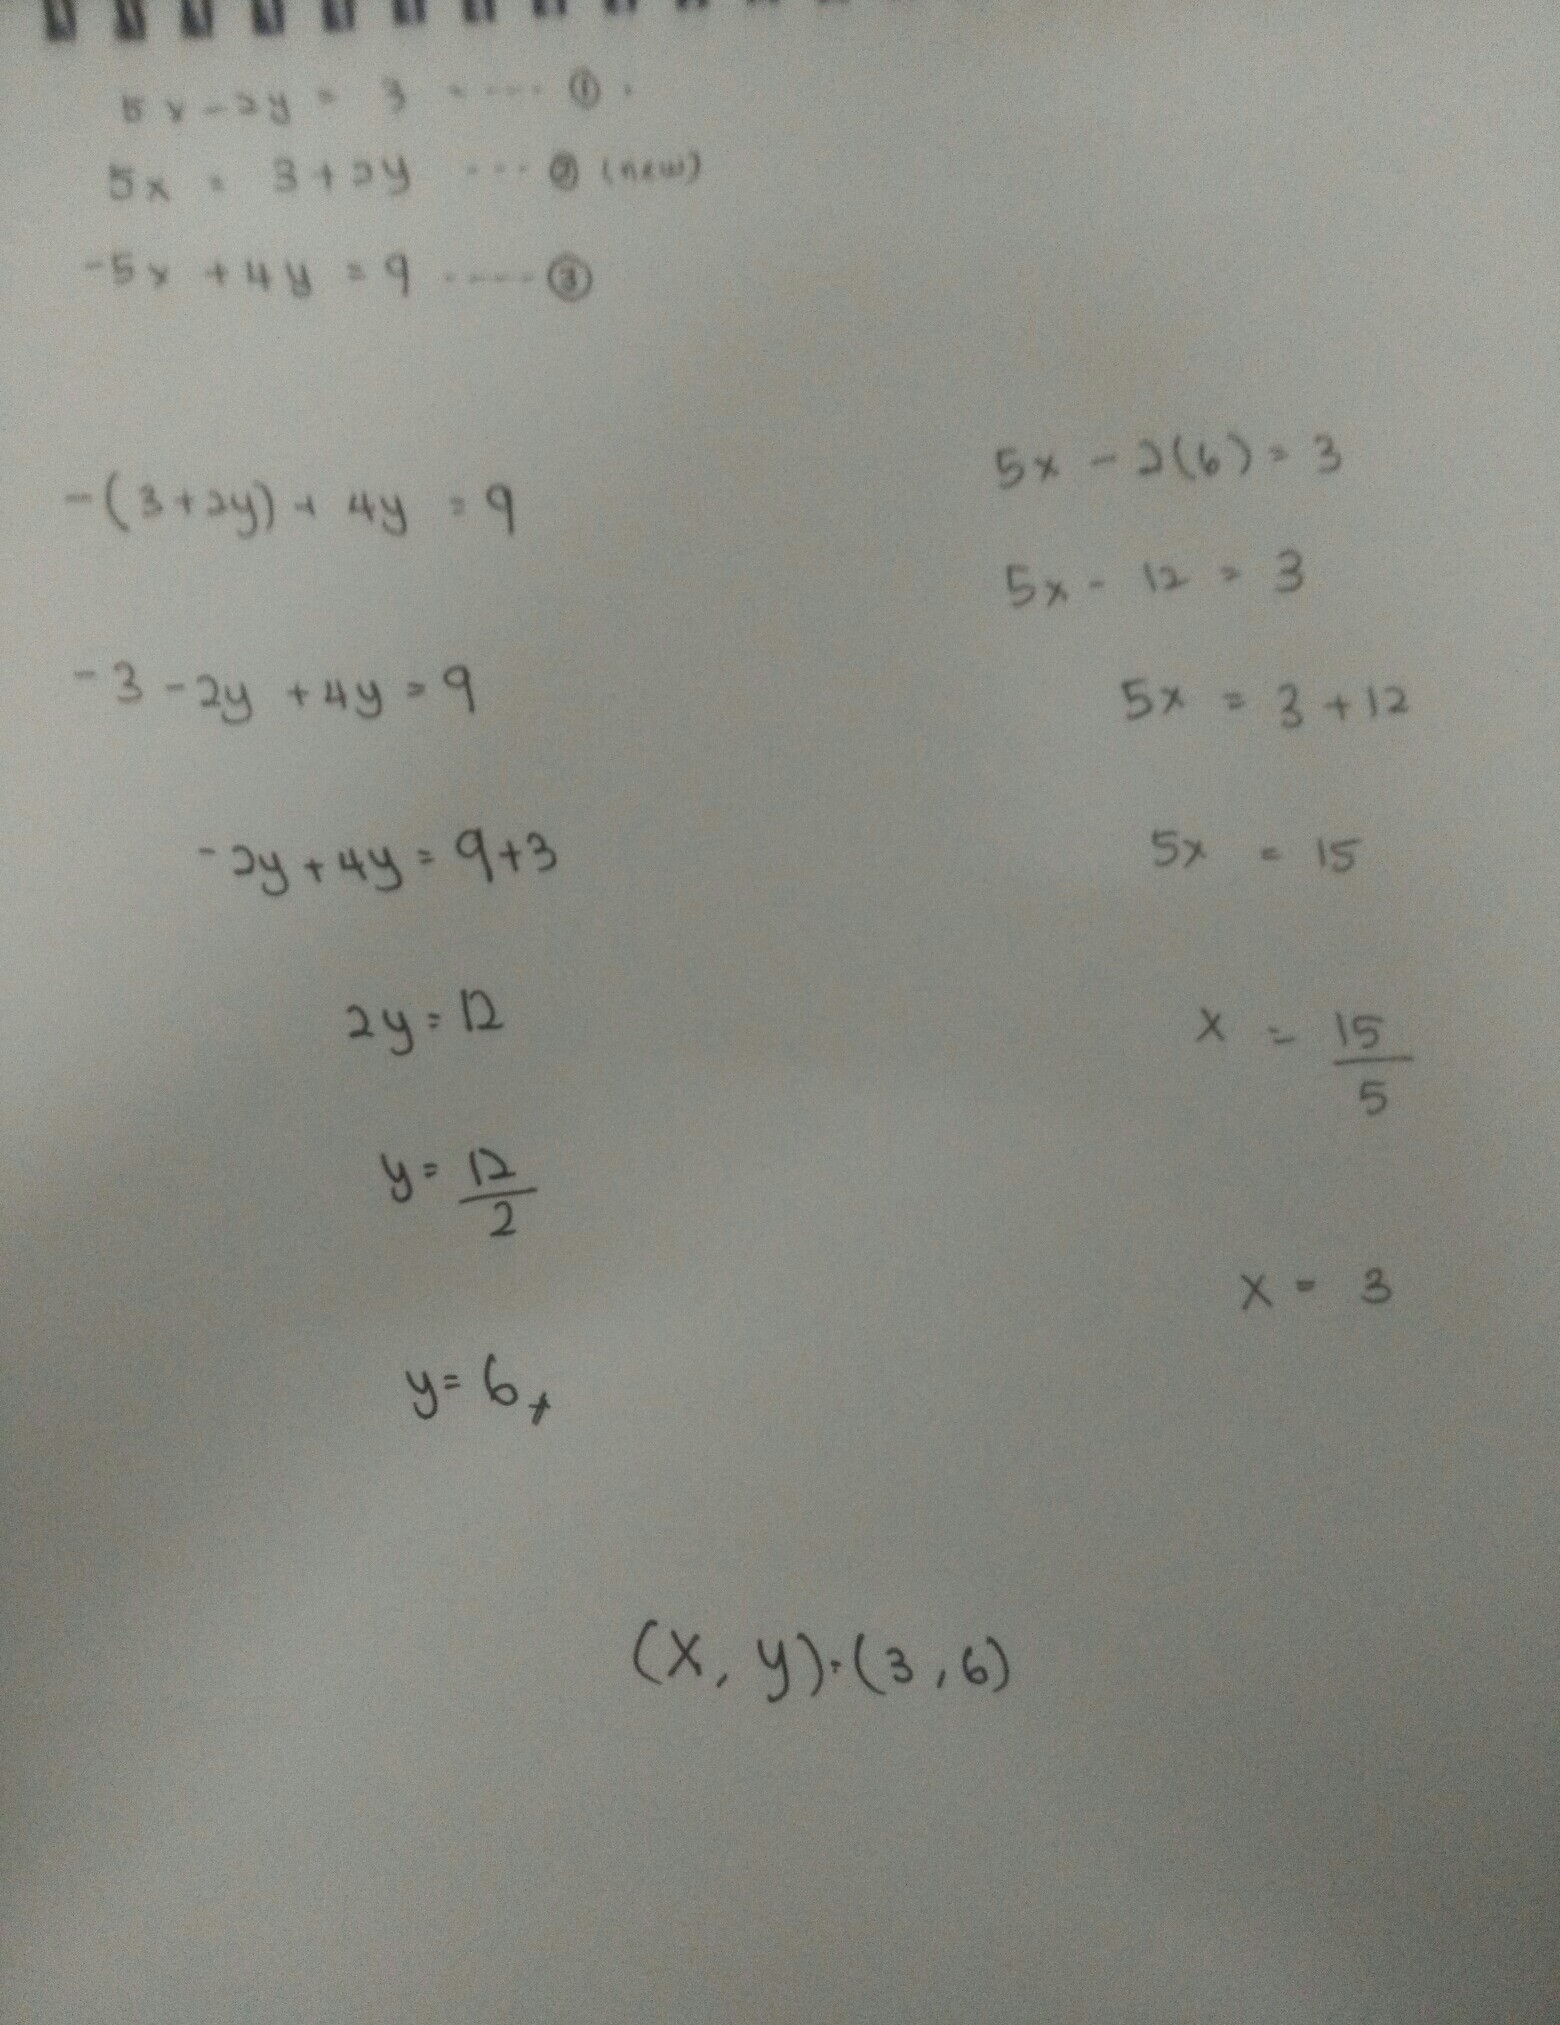 5x - 2y = 3 ----- ① .
5x = 3 + 2y --- ② (new)
-5x + 4y = 9 ----- ③
-(3+2y) + 4y = 9
-3 - 2y + 4y = 9
-2y + 4y = 9+3
2y = 12
y = 12/2
y = 6
5x - 2(6) = 3
5x - 12 = 3
5x = 3 + 12
5x = 15
x = 15/5
x = 3
(x, y) = (3, 6)